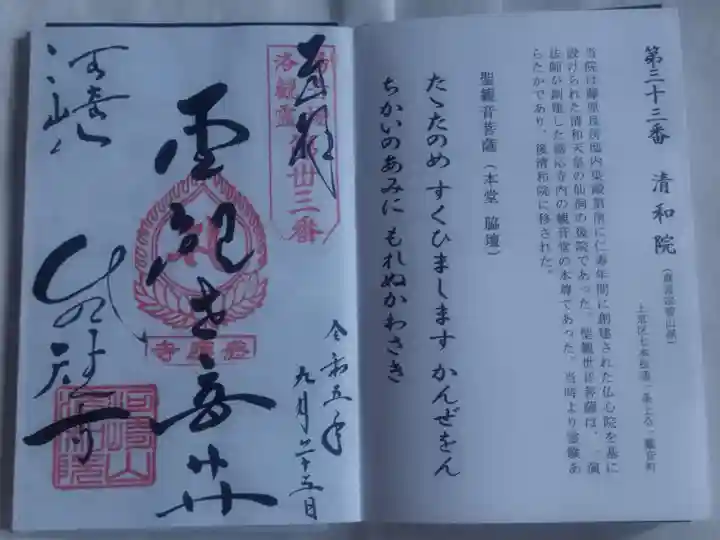 第三十三番 清和院
(真言宗智山派)
上京区七本松通一条上る一観音町
当院は藤原良房邸内東殿別所に仁寿年間に創建された仏心院を基に
設けられた清和天皇の仙洞の後院であった。聖観世音菩薩は、一演
法師が創建した感応寺内の観音堂の本尊であった。当時より霊験あ
らたかであり、後清和院に移された。
聖観音菩薩(本堂 脇壇)
たゝたのめ すくひましますかんぜをん
ちかいのあみに もれぬかわさき
奉拝
洛観霊
第卅三番
聖観世音
河崎
感應寺
令和五年
九月二十三日